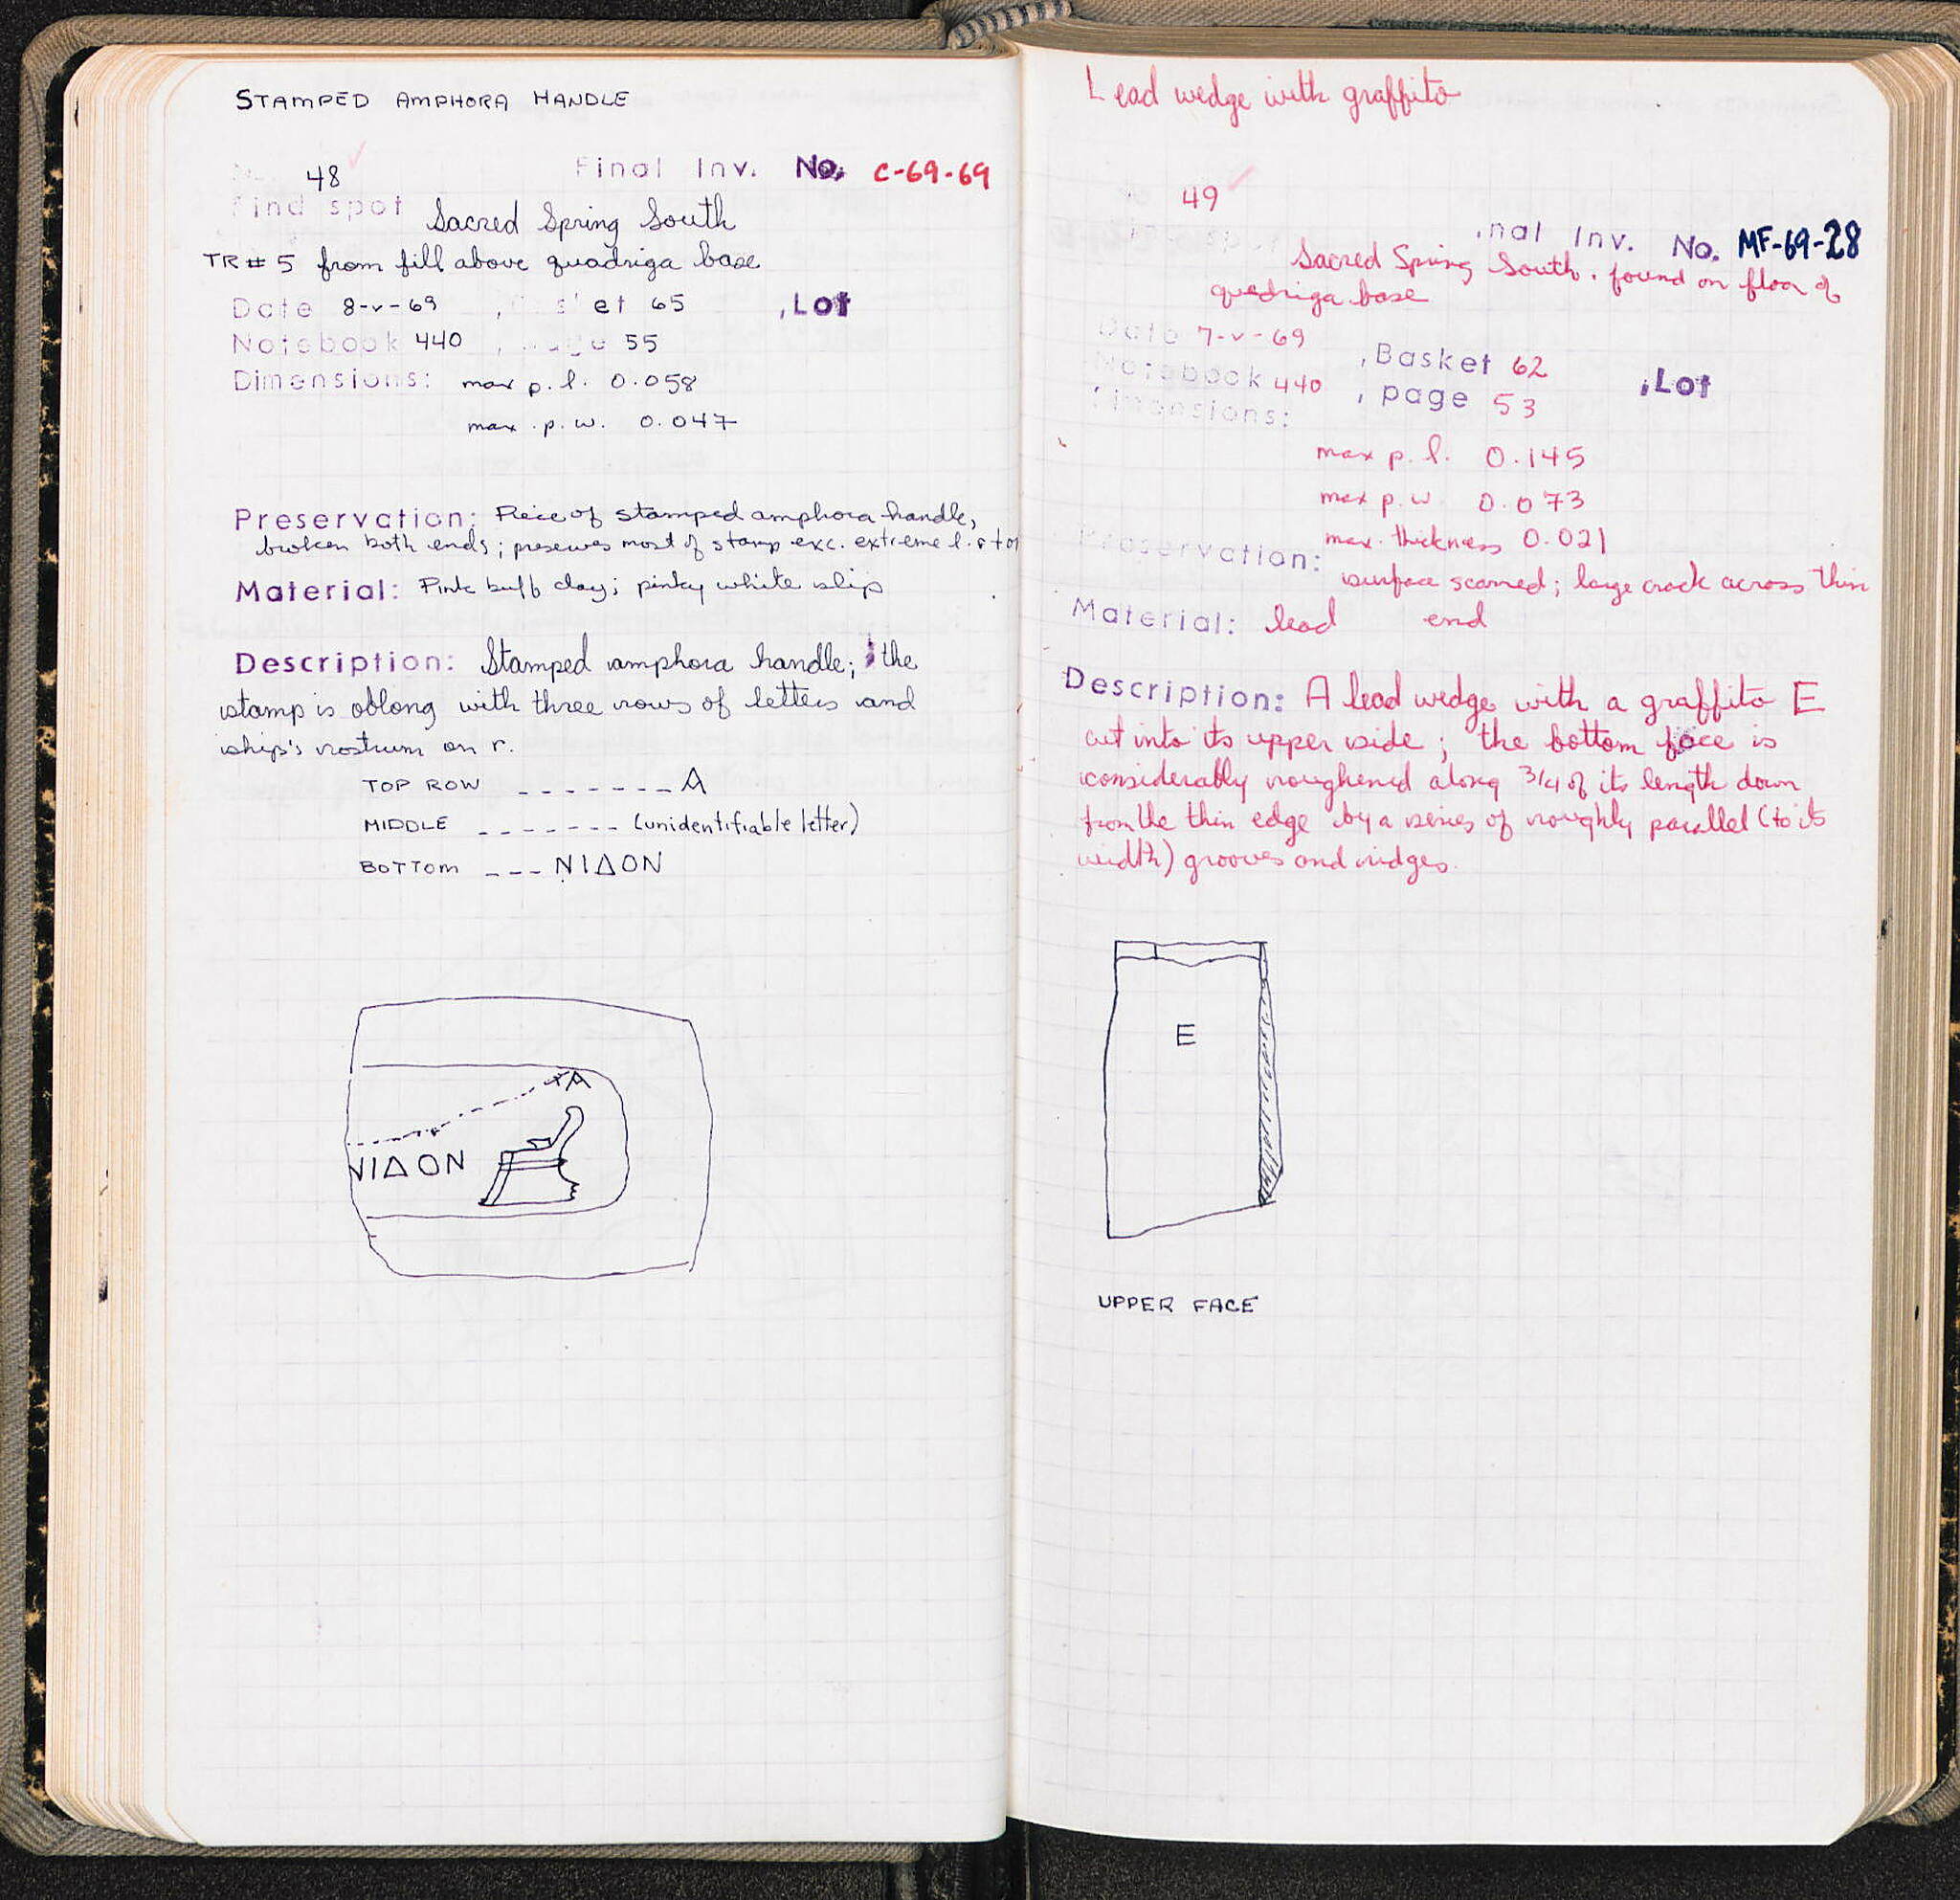 STAMPED AMPHORA HANDLE
48 Final Inv. No. C-69-69
Find spot Sacred Spring South
TR # 5 from fill above quadriga base
Date 8-v-69 , et 65 , Lot
Notebook 440 , 55
Dimensions: max p. l. 0.058
max. p. w. 0.047
Preservation: Piece of stamped amphora handle,
broken both ends; preserves most of stamp exc. extreme l.
Material: Pink buff clay; pinky white slip
Description: Stamped amphora handle; the
stamp is oblong with three rows of letters and
ship's rostrum on r.
TOP ROW _ _ _ _ _ _ _ A
MIDDLE _ _ _ _ _ _ _ (unidentifiable letter)
BOTTOM _ _ _ ΝΙΔΟΝ
A
ΝΙΔΟΝ
Lead wedge with graffito
49
nal Inv. No. MF-69-28
Sacred Spring South. found on floor of
quadriga base
Date 7-v-69 , Basket 62
Notebook 440 , page 53 , Lot
imensions:
max p. l. 0.145
max p. w. 0.073
max. thickness 0.021
Preservation: surface scarred; large crack across thin
end
Material: lead
Description: A lead wedge with a graffito E
cut into its upper side; the bottom face is
considerably roughened along 3/4 of its length down
from the thin edge by a series of roughly parallel (to its
width) grooves and ridges.
E
UPPER FACE